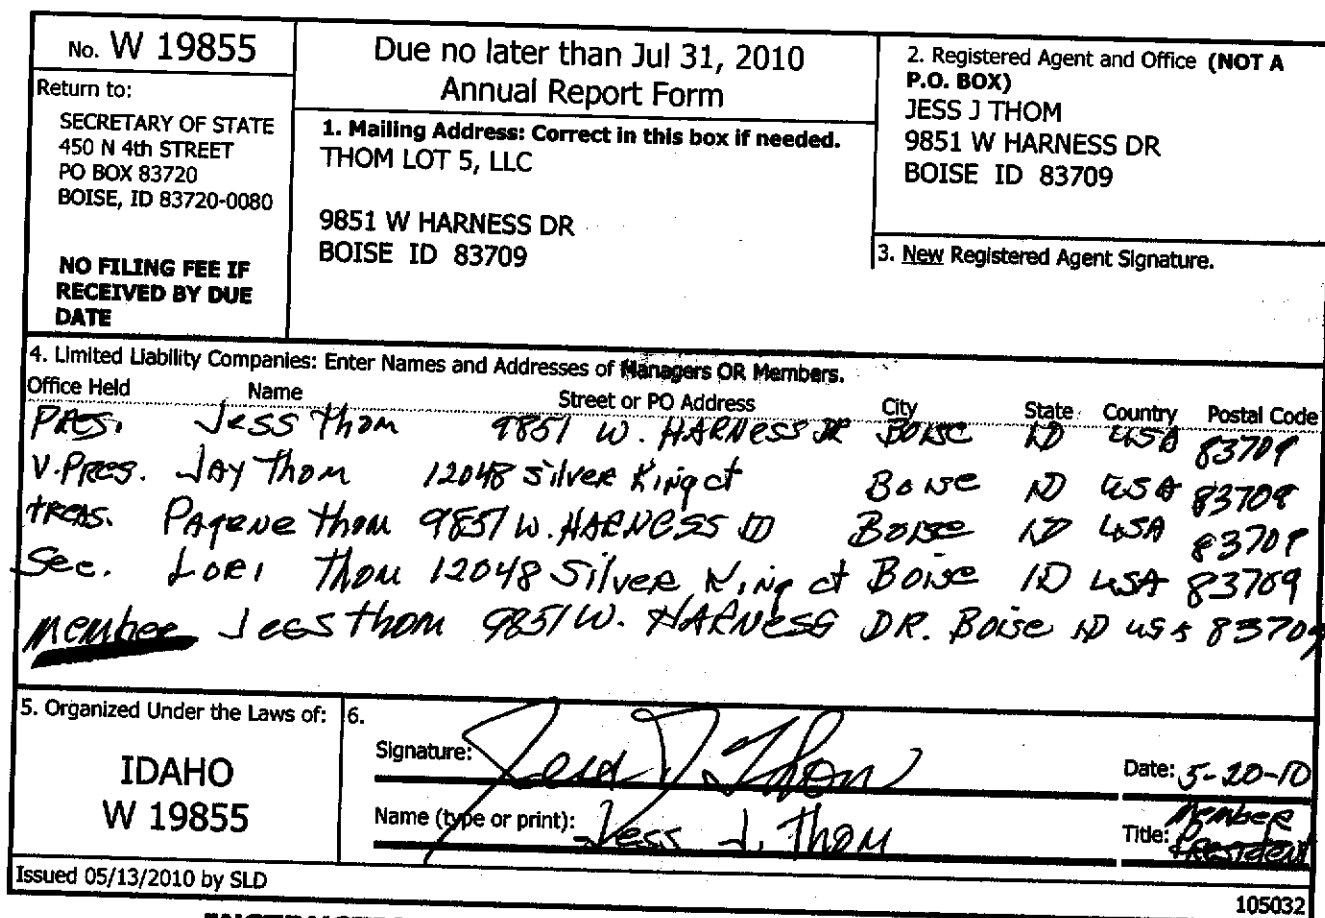 No. W 19855
Return to:
SECRETARY OF STATE
450 N 4th STREET
PO BOX 83720
BOISE, ID 83720-0080
NO FILING FEE IF
RECEIVED BY DUE
DATE
Due no later than Jul 31, 2010
Annual Report Form
1. Mailing Address: Correct in this box if needed.
THOM LOT 5, LLC
9851 W HARNESS DR
BOISE ID 83709
2. Registered Agent and Office (NOT A
P.O. BOX)
JESS J THOM
9851 W HARNESS DR
BOISE ID 83709
3. New Registered Agent Signature.
4. Limited Liability Companies: Enter Names and Addresses of Managers OR Members.
Office Held Name Street or PO Address City State Country Postal Code
PRES. Jess Thom 9851 W. HARNESS DR BOISE ID USA 83709
V.PRES. JAY Thom 12048 Silver King ct BOISE ID USA 83709
treas. Thom 9851 W. HARNESS BOISE ID USA 83709
Sec. LORI Thom 12048 Silver King ct Boise ID USA 83709
Member Jess thom 9851 W. HARNESS DR. Boise ID USA 83709
5. Organized Under the Laws of:
IDAHO
W 19855
6.
Signature: Jess J. Thom
Date: 5-20-10
Name (type or print): Jess J. Thom
Title: Member
President
Issued 05/13/2010 by SLD
105032